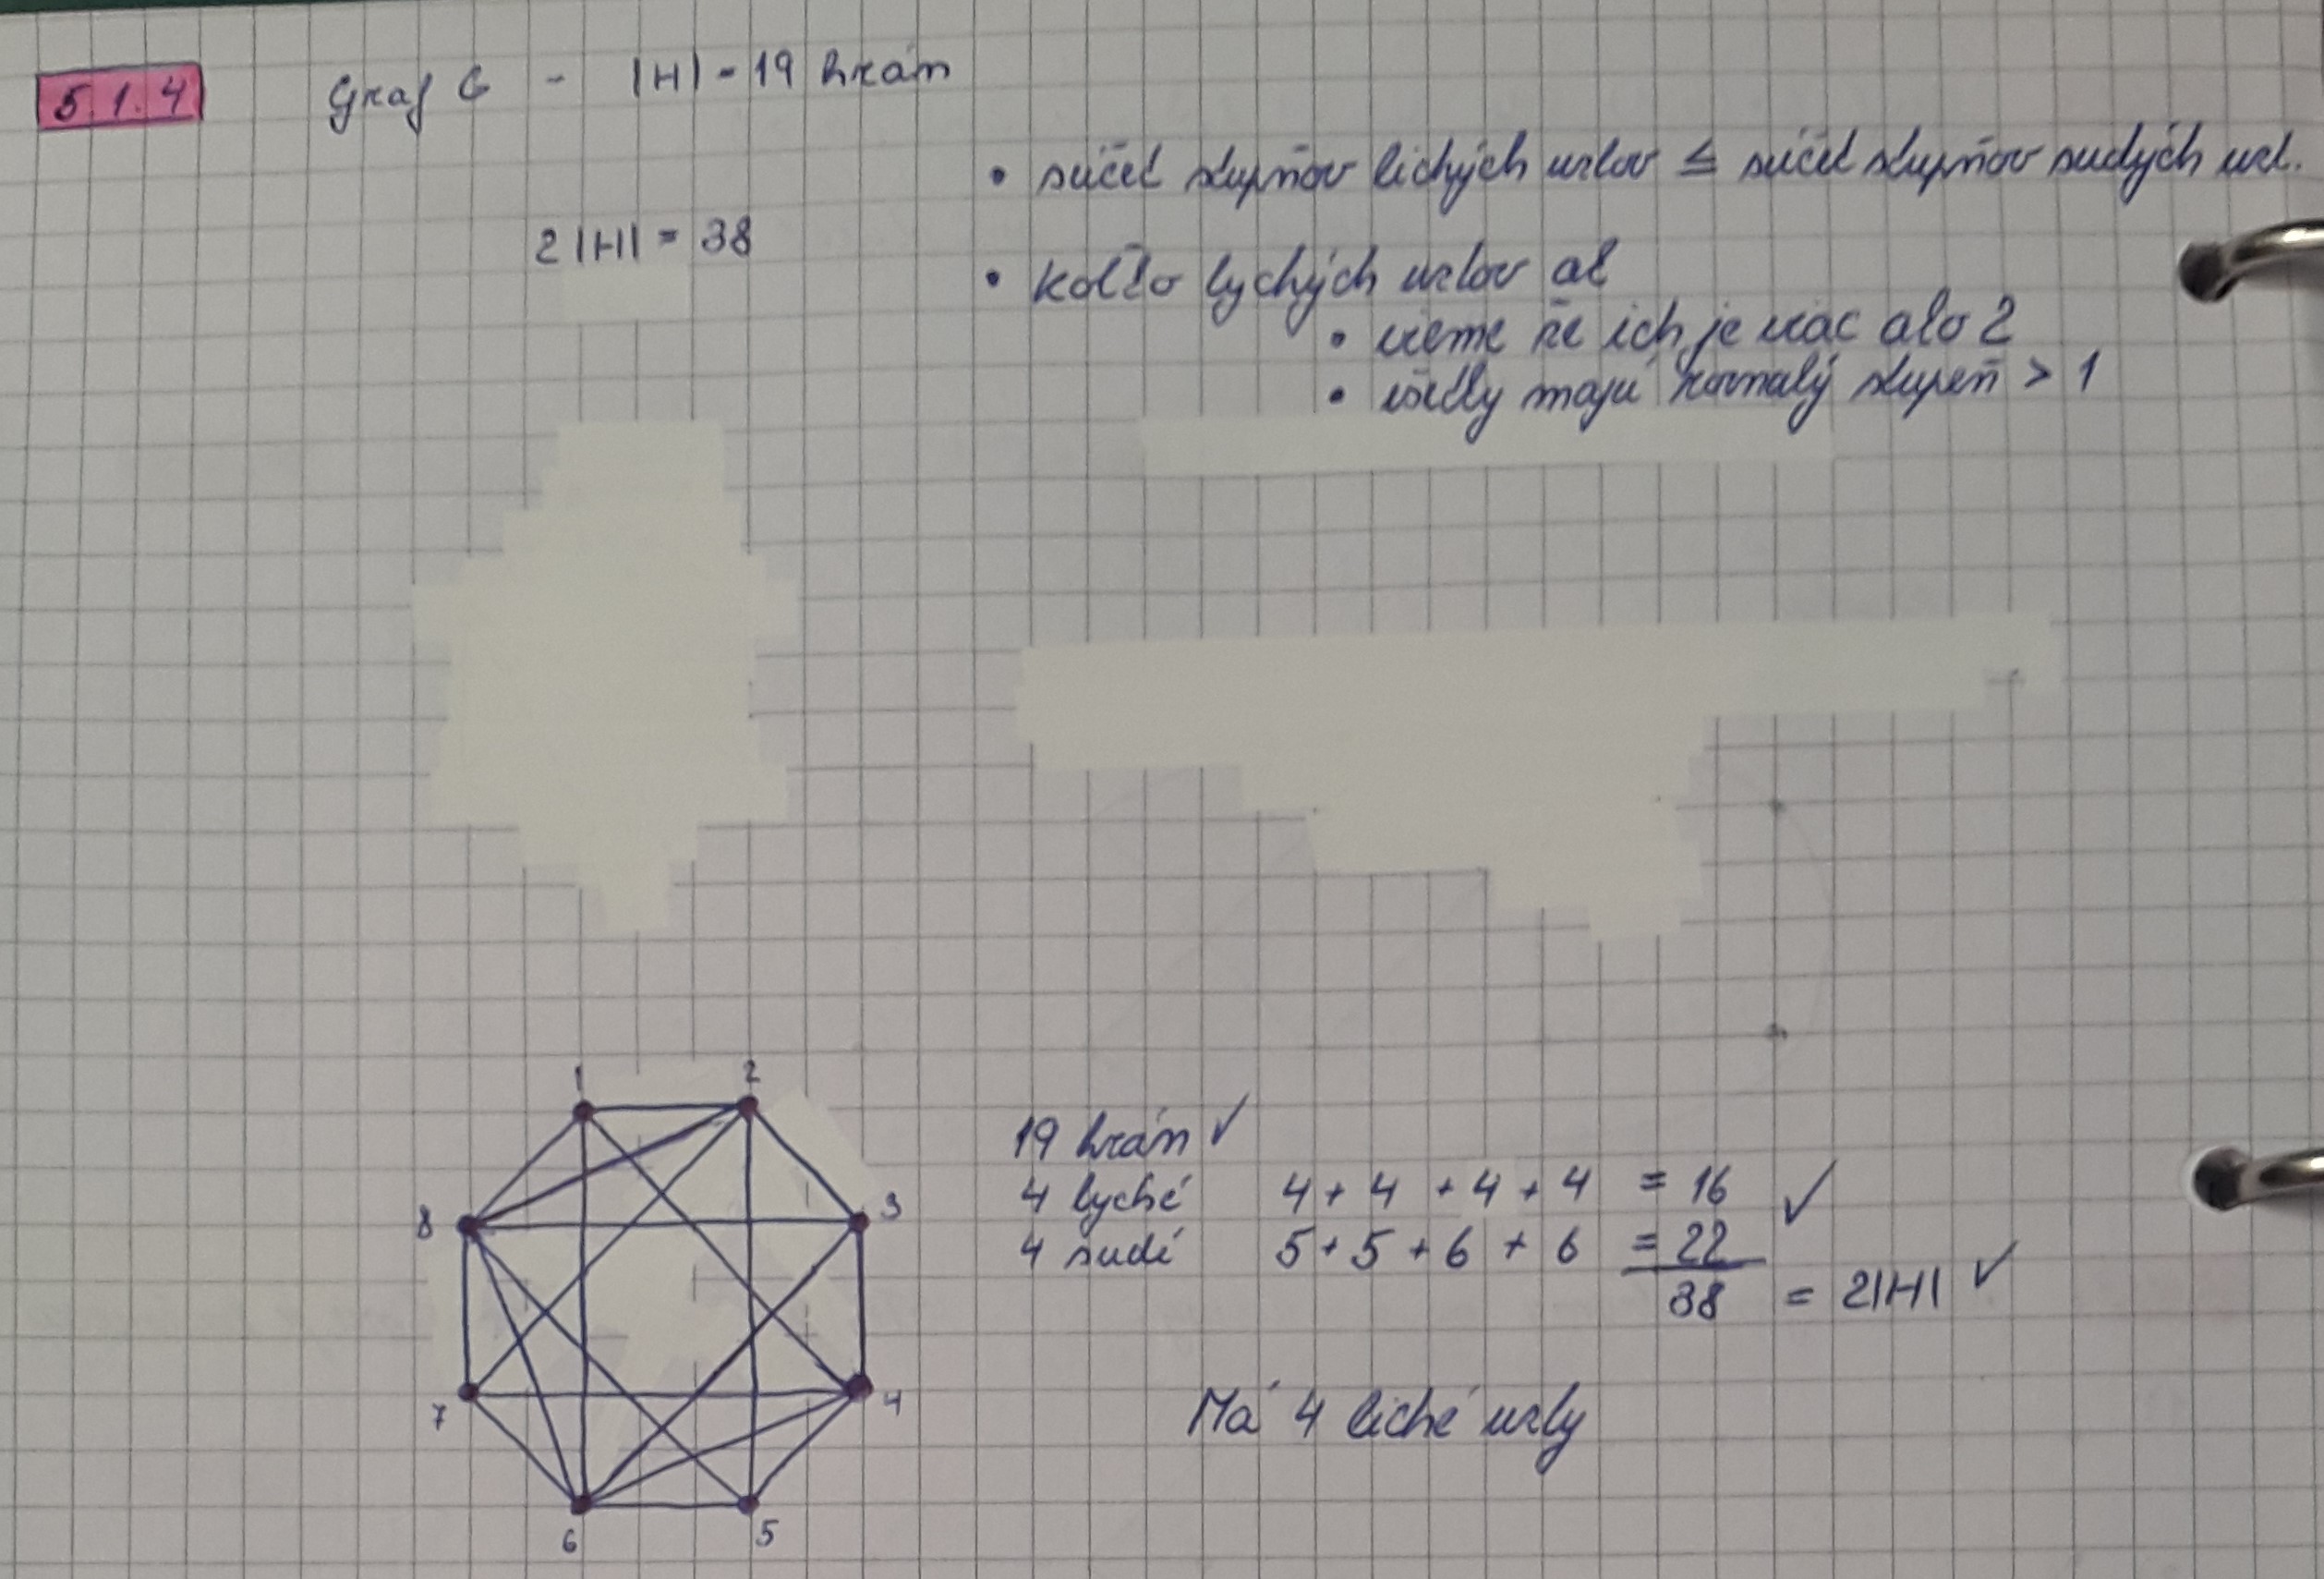 5.1.4 Graf G - |H| - 19 hrán
• súčet stupňov lichých uzlov ≤ súčet stupňov sudých uzl.
2|H| = 38
• koľko lychých uzlov ak
• vieme že ich je viac ako 2
• všetky majú rovnaký stupeň > 1
1 2
8 3
7 4
6 5
19 hrán ✓
4 lyché 4 + 4 + 4 + 4 = 16 ✓
4 sudé 5 + 5 + 6 + 6 = 22
38 = 2|H| ✓
Má 4 liché uzly